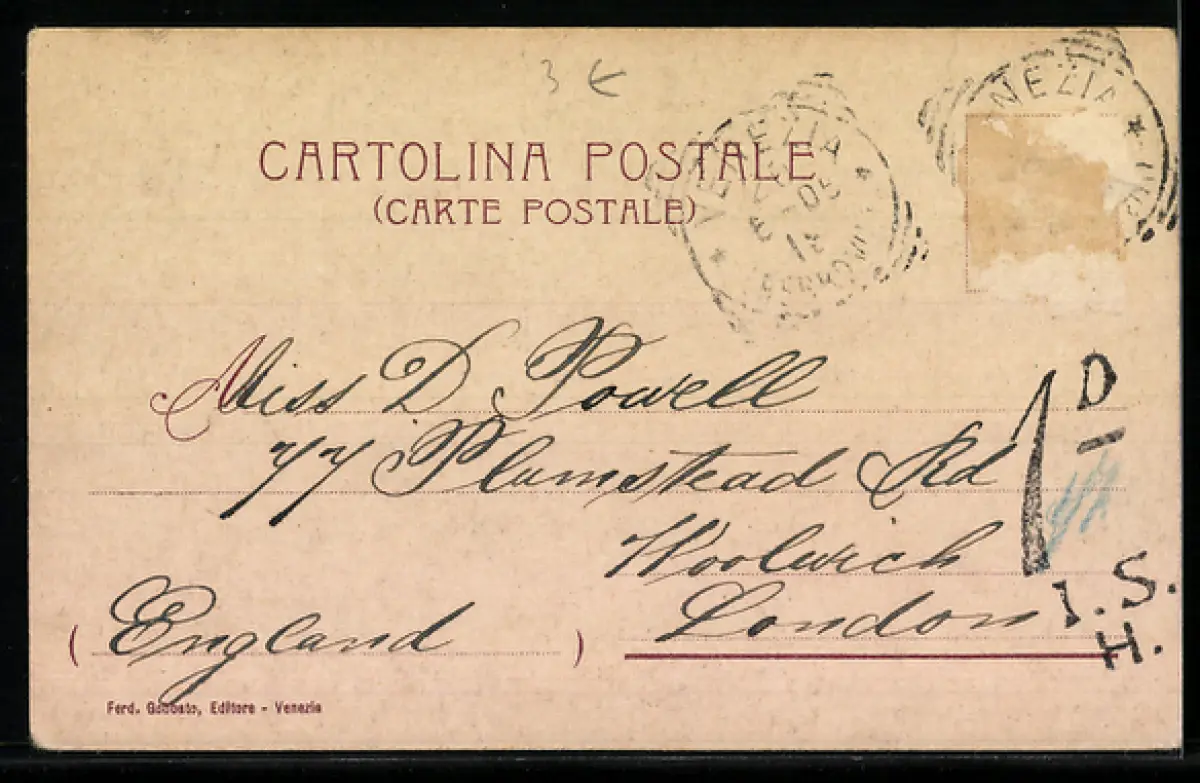 3 €
CARTOLINA POSTALE
(CARTE POSTALE)
VENEZIA
05
NEZIA
Miss D Powell
77 Plumstead Rd
Woolwich
London
(England)
1D
I.S.
H.
Ferd. Gobbato, Editore - Venezia